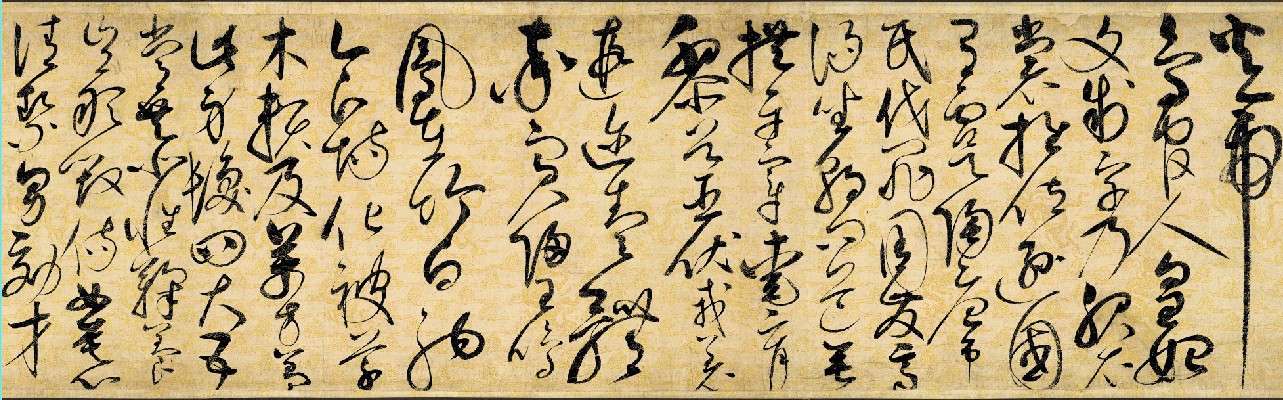 火帝
鳥官人皇始
文制字乃服衣
裳推位遜國
有虞陶唐弔
民伐罪周發商
湯坐朝問道垂
拱平章愛育
黎首臣伏戎羌
遐邇壹體
率賓歸王鳴
鳳在竹白駒
食場化被草
木賴及萬方蓋
此身髮四大五
常恭惟鞠養
豈敢毀傷女慕
清絜男効才